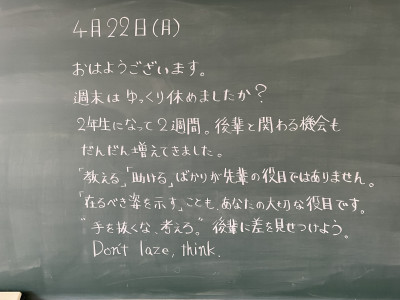 4月22日(月)
おはようございます。
週末はゆっくり休めましたか?
2年生になって2週間。後輩と関わる機会も
だんだん増えてきました。
「教える」「助ける」ばかりが先輩の役目ではありません。
「在るべき姿を示す」ことも、あなたの大切な役目です。
"手を抜くな、考えろ。"後輩に差を見せつけよう。
Don't laze, think.